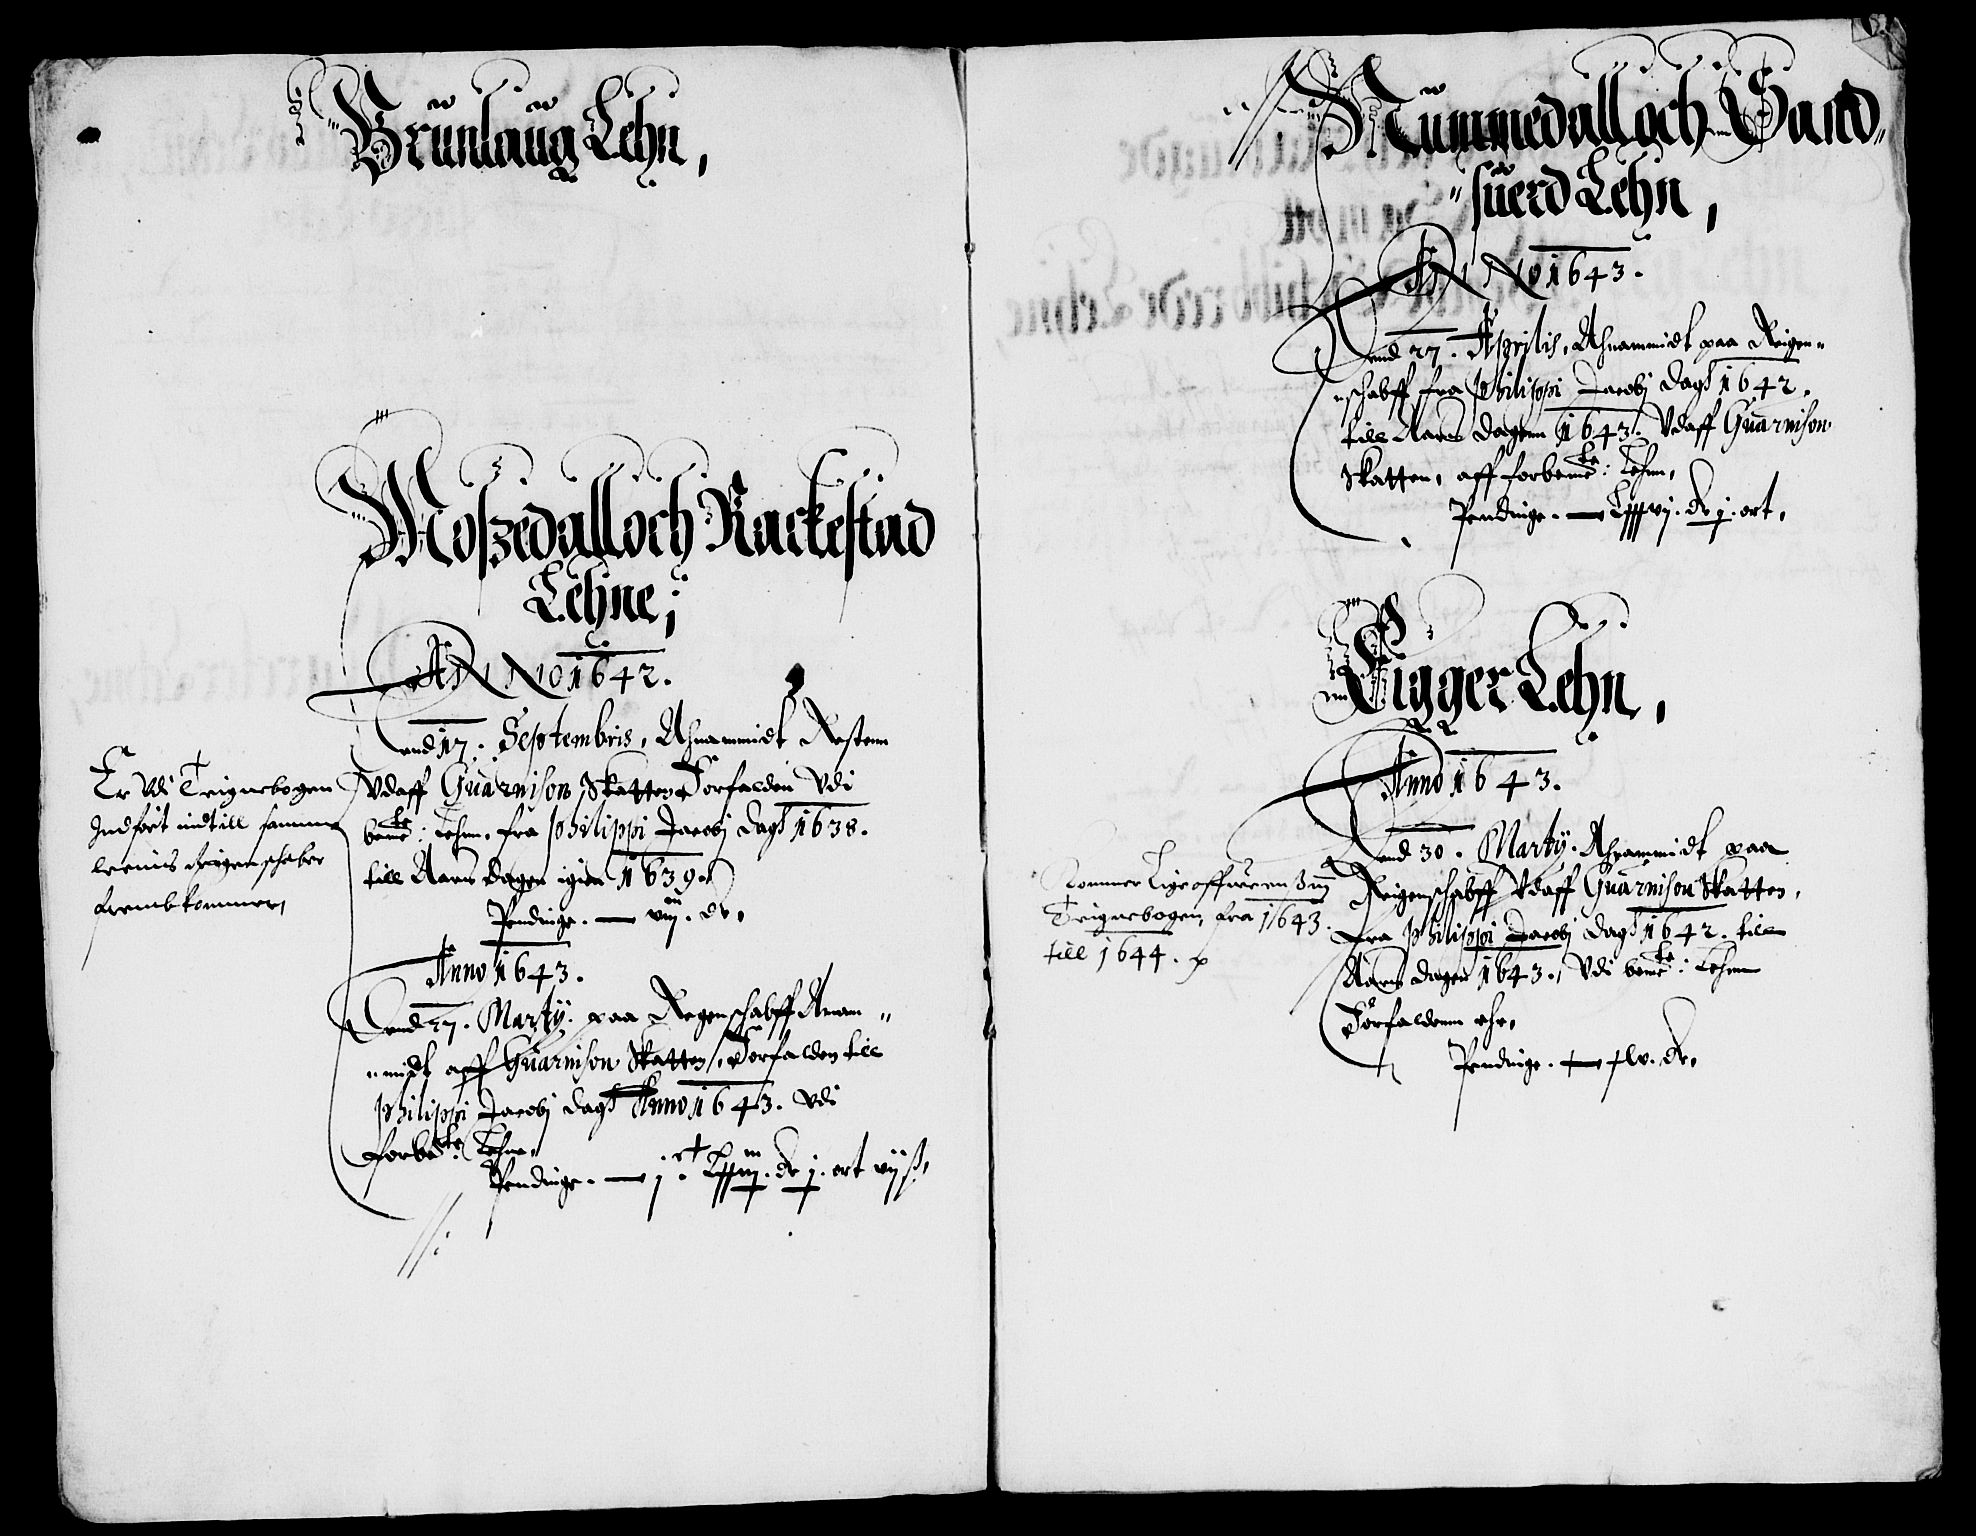 Brunlaug Lehn,
Moszedall och Rackestad
Lehne;
ANNO 1642.
Dend 17. Septembris, Ahnammidt Resten
Vdaff Guarnison Skatten Forfalden Vdi
bemte: Lehn. fra Philippi Jacobj dagh 1638.
till Aars dagen igien 1639.
Pendinge. — viij. dr.
Anno 1643.
Dend 27. Martij. paa Regenschabff Annam
midt aff Guarnison Skatten, Forfalden till
Philippi Jacobj dagh Anno 1643. Vdi
forbemte: Lehne,
Pendinge. — j. ort vij ß,
Er Vdi Trignebogen
Indført indtill samme
Leenis Reigenschaber
frembkommer,
Nummedall och Sand
suerd Lehn,
ANNO 1643.
Dend 27. Aprilis, Ahnammidt paa Reigen
schabff fra Philippi Jacobj dagh 1642.
till Aars dagen 1643. Vdaff Guarnison
Skatten, aff forbemte: Lehn,
Pendinge. — dr j. ort,
Eigger Lehn,
Anno 1643.
Dend 30. Martij. Ahnammidt paa
Reigenschabff Vdaff Guarnison Skatten,
fra Philippi Jacobj dagh 1642. till
Aars dagen 1643., Vdi bemte: Lehn
Forfalden ehr,
Pendinge. — dr,
Kommer Lige offuereens
Trignebogen, fra 1643.
till 1644.